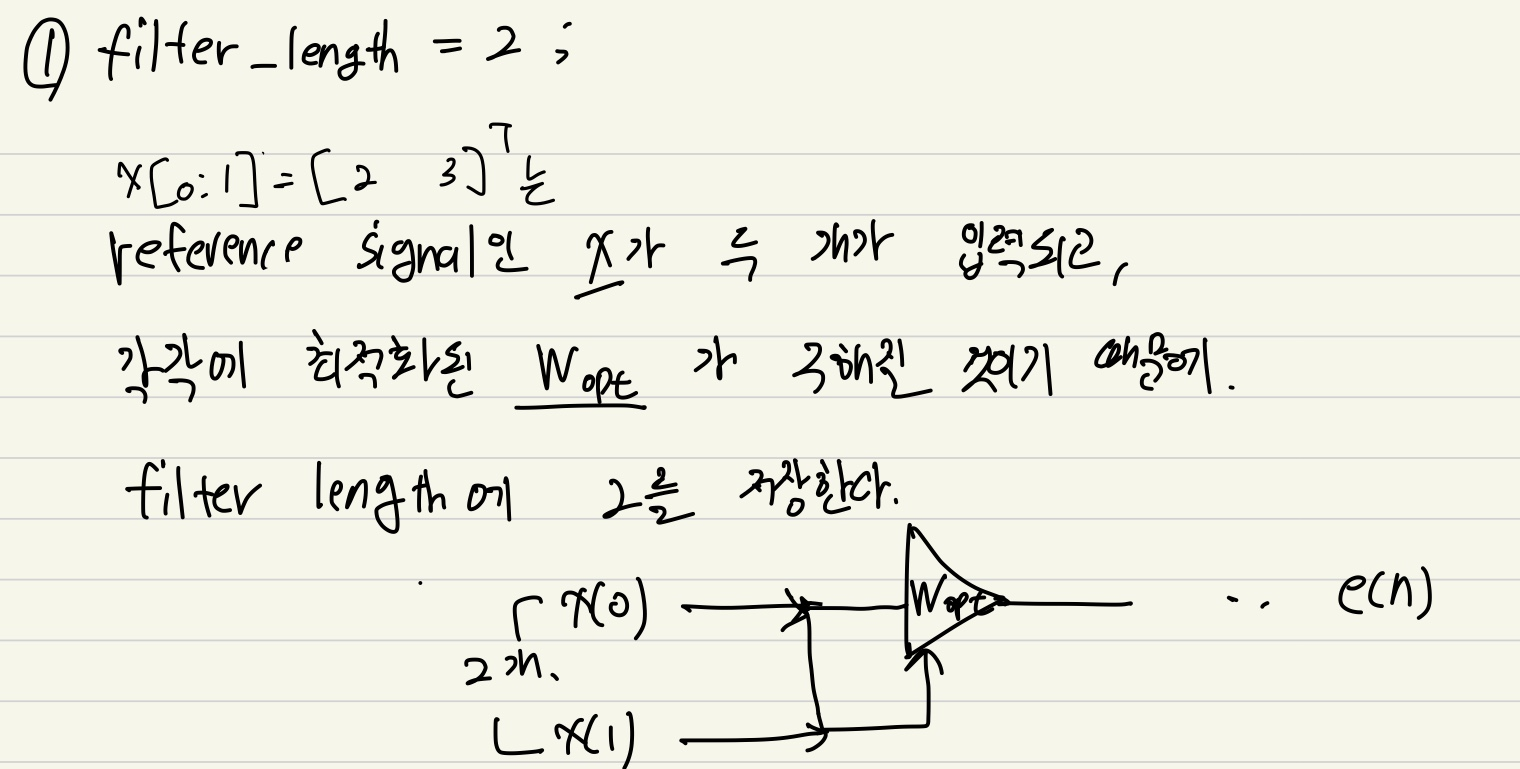 ① filter_length = 2 ;
x[0:1] = [2 3]ᵀ는
reference signal인 x가 두 개가 입력되고,
각각에 최적화된 Wopt 가 구해진 것이기 때문에.
filter length에 2를 저장한다.
x(0) Wopt ·· e(n)
2개.
x(1)